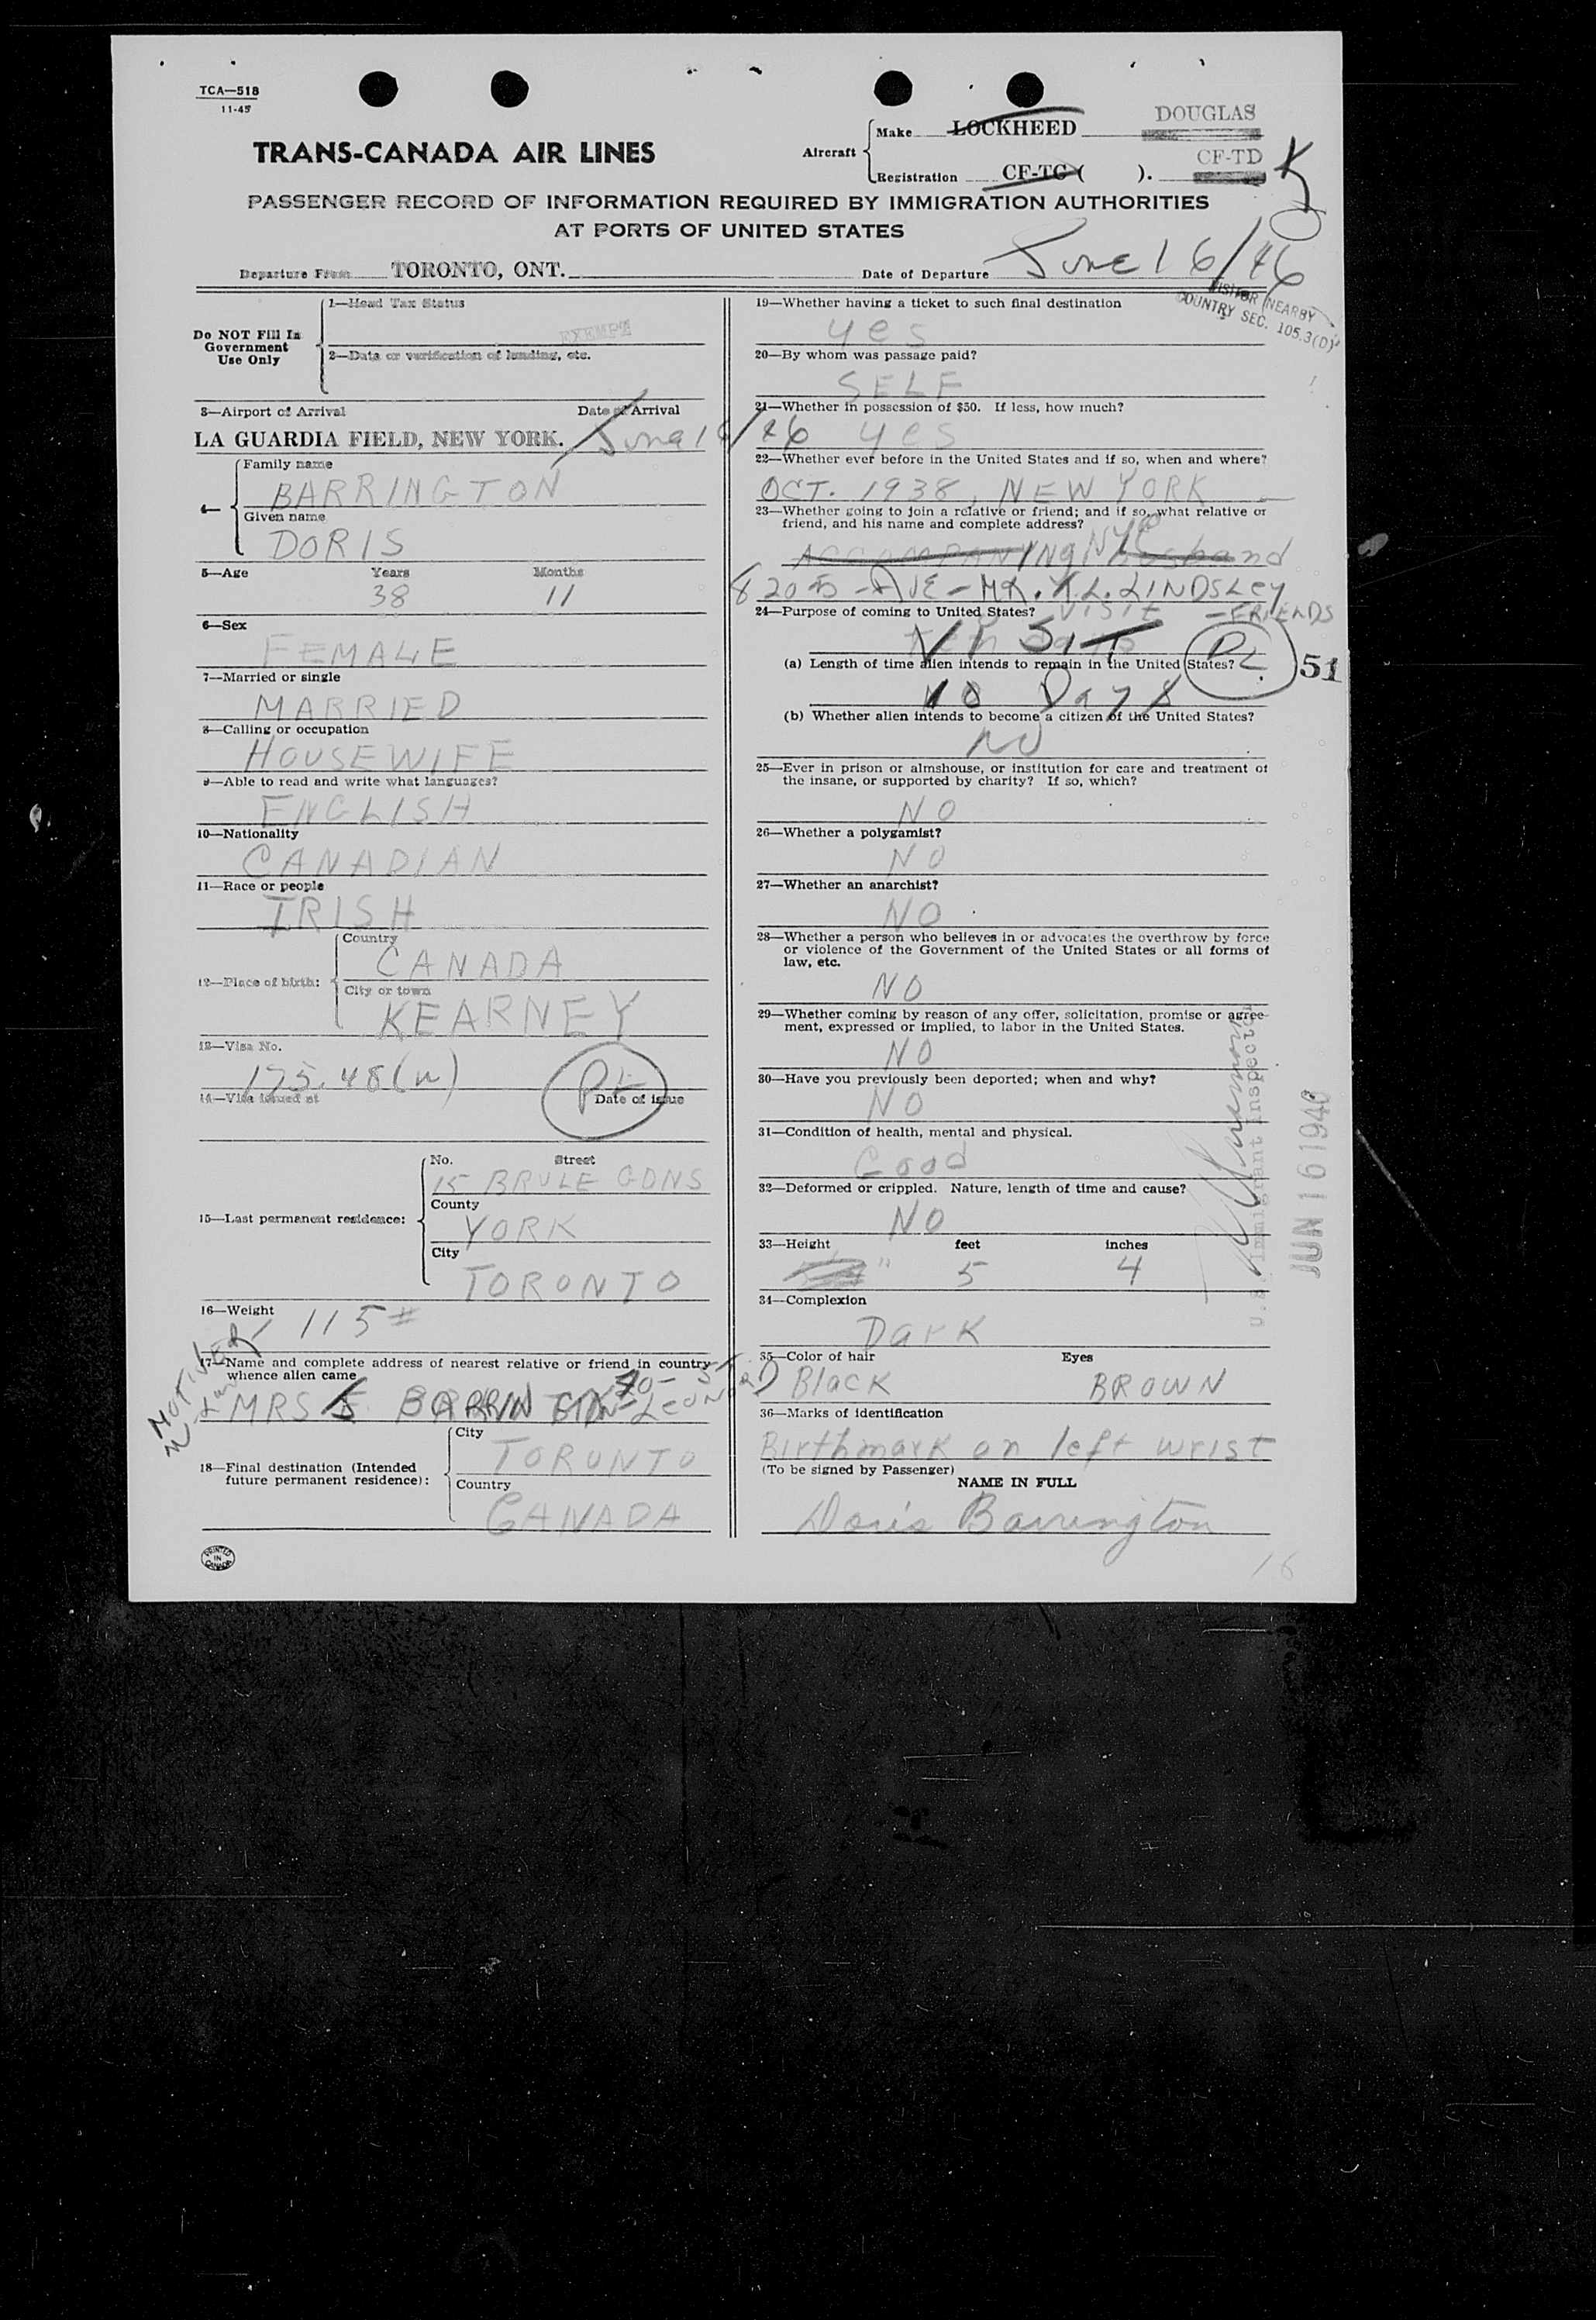 TCA—518
11-45
TRANS-CANADA AIR LINES
Aircraft
Make LOCKHEED DOUGLAS
Registration CF-TC ( ). CF-TD K
PASSENGER RECORD OF INFORMATION REQUIRED BY IMMIGRATION AUTHORITIES
AT PORTS OF UNITED STATES
Departure From TORONTO, ONT.
Date of Departure June 16/46
VISITOR NEARBY
COUNTRY SEC. 105.3(D)
Do NOT Fill In
Government
Use Only
1—Head Tax Status
EXEMPT
2—Data or verification of landing, etc.
3—Airport of Arrival Date of Arrival
LA GUARDIA FIELD, NEW YORK. June 16/46
4—
Family name
BARRINGTON
Given name
DORIS
5—Age Years Months
38 11
6—Sex
FEMALE
7—Married or single
MARRIED
8—Calling or occupation
HOUSEWIFE
9—Able to read and write what languages?
ENGLISH
10—Nationality
CANADIAN
11—Race or people
IRISH
12—Place of birth:
Country
CANADA
City or town
KEARNEY
13—Visa No.
175.48(w)
PL
14—Visa issued at Date of issue
15—Last permanent residence:
No. Street
15 BRULE GDNS
County
YORK
City
TORONTO
16—Weight
115#
17—Name and complete address of nearest relative or friend in country
whence alien came
MOTHER
MRS BARRINGTON
18—Final destination (Intended
future permanent residence):
City
TORONTO
Country
CANADA
PRINTED
IN
CANADA
19—Whether having a ticket to such final destination
yes
20—By whom was passage paid?
SELF
21—Whether in possession of $50. If less, how much?
yes
22—Whether ever before in the United States and if so, when and where?
OCT. 1938, NEW YORK
23—Whether going to join a relative or friend; and if so, what relative or
friend, and his name and complete address?
ACCOMPANYING husband NYC
820 5 - AVE - MR. LINDSLEY
24—Purpose of coming to United States? VISIT - FRIENDS
VISIT
PL
51
(a) Length of time alien intends to remain in the United States?
10 Days
(b) Whether alien intends to become a citizen of the United States?
NO
25—Ever in prison or almshouse, or institution for care and treatment of
the insane, or supported by charity? If so, which?
NO
26—Whether a polygamist?
NO
27—Whether an anarchist?
NO
28—Whether a person who believes in or advocates the overthrow by force
or violence of the Government of the United States or all forms of
law, etc.
NO
29—Whether coming by reason of any offer, solicitation, promise or agree-
ment, expressed or implied, to labor in the United States.
NO
30—Have you previously been deported; when and why?
NO
31—Condition of health, mental and physical.
Good
32—Deformed or crippled. Nature, length of time and cause?
NO
33—Height feet inches
5 4
34—Complexion
Dark
35—Color of hair Eyes
Black BROWN
36—Marks of identification
Birthmark on left wrist
(To be signed by Passenger)
NAME IN FULL
Doris Barrington
U.S. Immigrant Inspector
JUN 16 1946
16